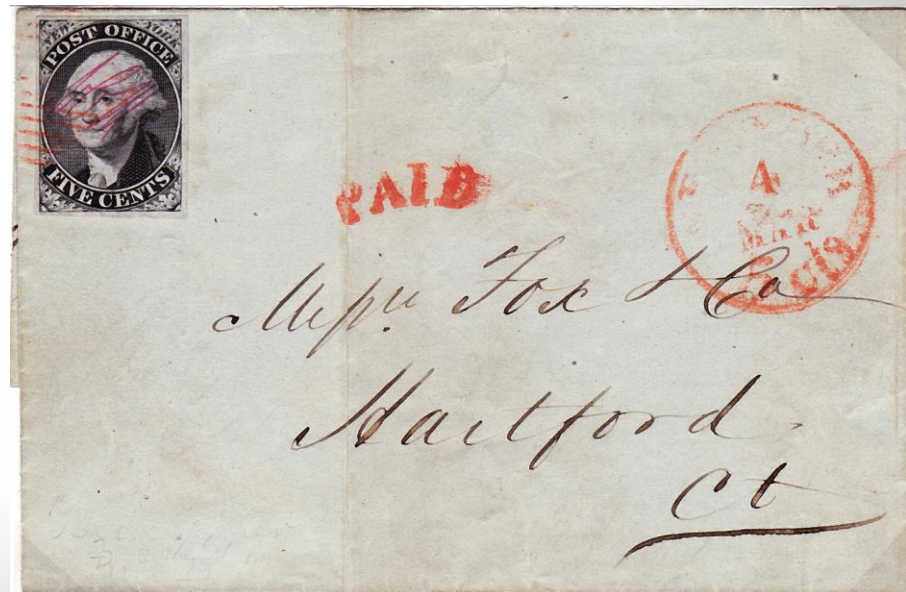 POST OFFICE
FIVE CENTS
PAID
4
MAR
5 cts
Messrs Fox & Co
Hartford
Ct